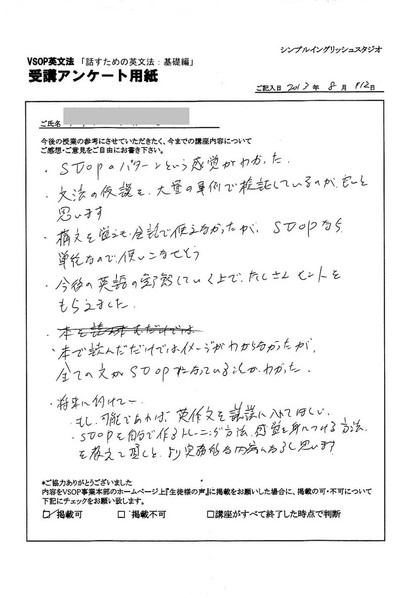 シンプルイングリッシュスタジオ
VSOP英文法 「話すための英文法：基礎編」
受講アンケート用紙
ご記入日 2013年 8月 12日
ご氏名
今後の授業の参考にさせていただきたく、今までの講座内容について
ご感想・ご意見をご自由にお書き下さい。
・SVOPのパターンという感覚がわかった.
・文法の仮説を、大量の事例で検証しているのが、
思います
・構文を覚えも会話で使えなかったが、SVOPなら
単純なので使いこなせそう
・今後の英語の 勉していく上で、たくさんヒントを
もらえました.
・本で読んだだけではイメージがわからなかったが、
全ての文がSVOPになっている わかった.
・将来に付けて-
・もし可能であれば、英作文を課題に入れてほしい.
・SVOPを自分で作るトレーニング方法、感覚を身につける方法
を教えて頂くと、より実務的な内容になると思います
*ご協力ありがとうございました
内容をVSOP事業本部のホームページ上『生徒様の声』に掲載をお願いした場合に、掲載の可・不可について
下記にチェックをお願い致します。
☑掲載可 □掲載不可 □講座がすべて終了した時点で判断